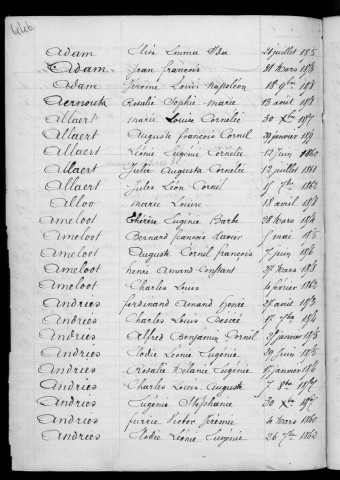 446
Adam Elise Emma Ida 21 juillet 1875
Adam Jean françois 31 Mars 1876
Adam Jérôme Louis Napoléon 18 9bre 1878
Aernouts Rosalie Sophie Marie 13 août 1878
Allaert Marie Louise Cornélie 30 Xbre 1877
Allaert Auguste françois Cornil 29 janvier 1876
Allaert Léonie Eugénie Cornélie 12 juin 1860
Allaert Julie Augusta Cornélie 12 juillet 1861
Allaert Jules Léon Cornil 15 7bre 1862
Alloo Marie Louise 18 avril 1878
Ameloot Thérèse Eugénie Barbe 28 Mars 1874
Ameloot Bernard françois Xavier 5 mai 1875
Ameloot Auguste Cornil françois 7 juin 1876
Ameloot honoré Amand Constant 27 Mars 1878
Ameloot Charles Louis 4 février 1862
Andries ferdinand Amand honoré 27 avril 1873
Andries Charles Louis Désiré 15 7bre 1874
Andries Alfred Benjamin Cornil 28 janvier 1875
Andries Elodie Léonie Eugénie 20 juin 1875
Andries Rosalie Mélanie Eugénie 15 janvier 1876
Andries Charles Louis Auguste 7 8bre 1877
Andries Eugénie Stéphanie 30 Xbre 1877
Andries Victor Jérémie 4 Mars 1860
Andries Elodie Léonie Eugénie 26 7bre 1862